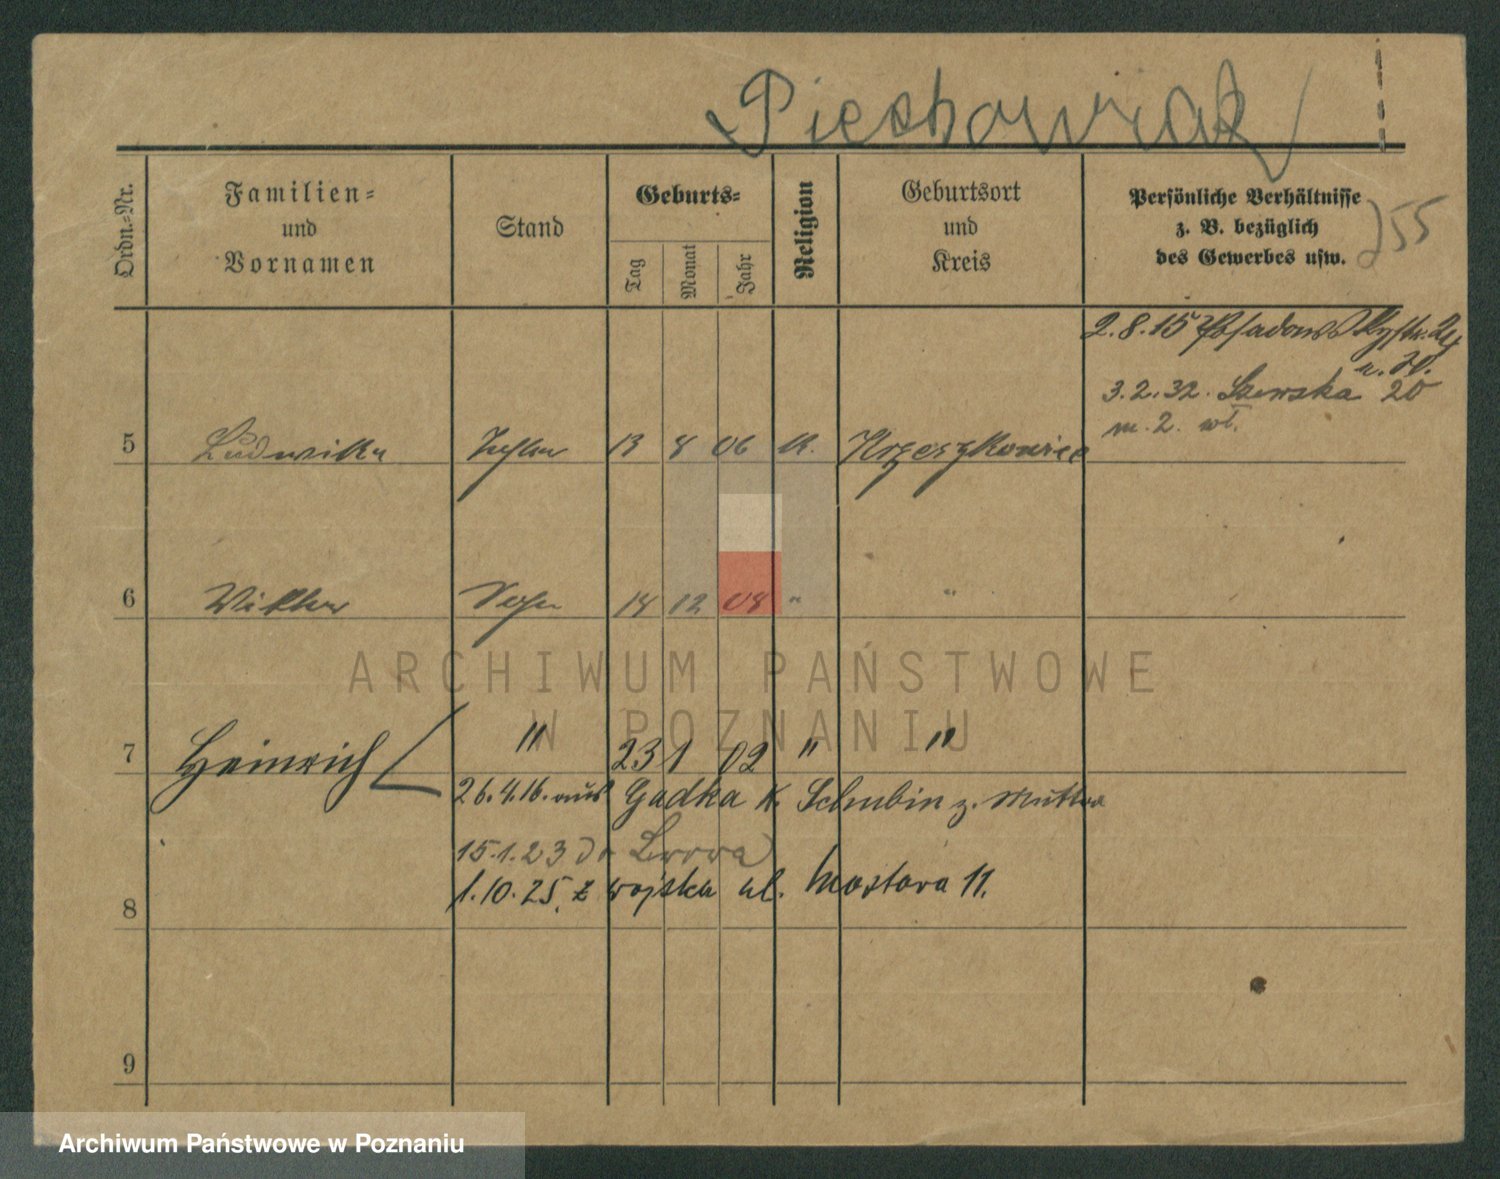 Piechowiak
Ordn.=Nr.
Familien=
und
Vornamen
Stand
Geburts=
Tag
Monat
Jahr
Religion
Geburtsort
und
Kreis
Persönliche Verhältnisse
z. B. bezüglich
des Gewerbes usw.
255
2.8.15
3.2.32. Szewska 20
m. 2. wł.
5 Ludwika Tochter 13 8 06 k.
6 Viktor Sohn 14 12 08 " "
7 Heinrich " 23 1 02 " "
26.4.16. aus Gadka K. Schubin z. Mutter
15.1.23 do Lwowa
1.10.25. z wojska ul. Mostowa 11.
8
9
ARCHIWUM PAŃSTWOWE
W POZNANIU
Archiwum Państwowe w Poznaniu